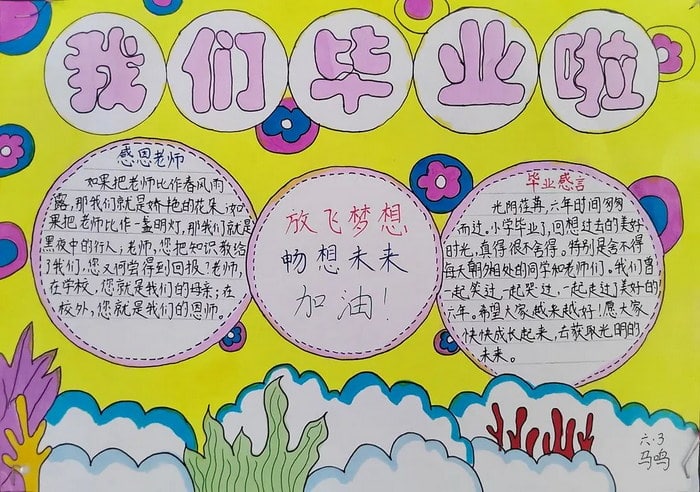 我们毕业啦
感恩老师
如果把老师比作春风雨
露,那我们就是娇艳的花朵;如
果把老师比作一盏明灯,那我们就是
黑夜中的行人;老师,您把知识教给
了我们,您又何尝得到回报?老师,
在学校,您就是我们的母亲;在
校外,您就是我们的恩师。
放飞梦想
畅想未来
加油!
毕业感言
光阴荏苒,六年时间匆匆
而过。小学毕业了,回想过去的美好
时光,真得很不舍得。特别是舍不得
每天朝夕相处的同学和老师们。我们曾
一起笑过一起哭过,一起走过了美好的
六年。希望大家越来越好!愿大家
快快成长起来,去获取光明的
未来。
六.3
马鸣